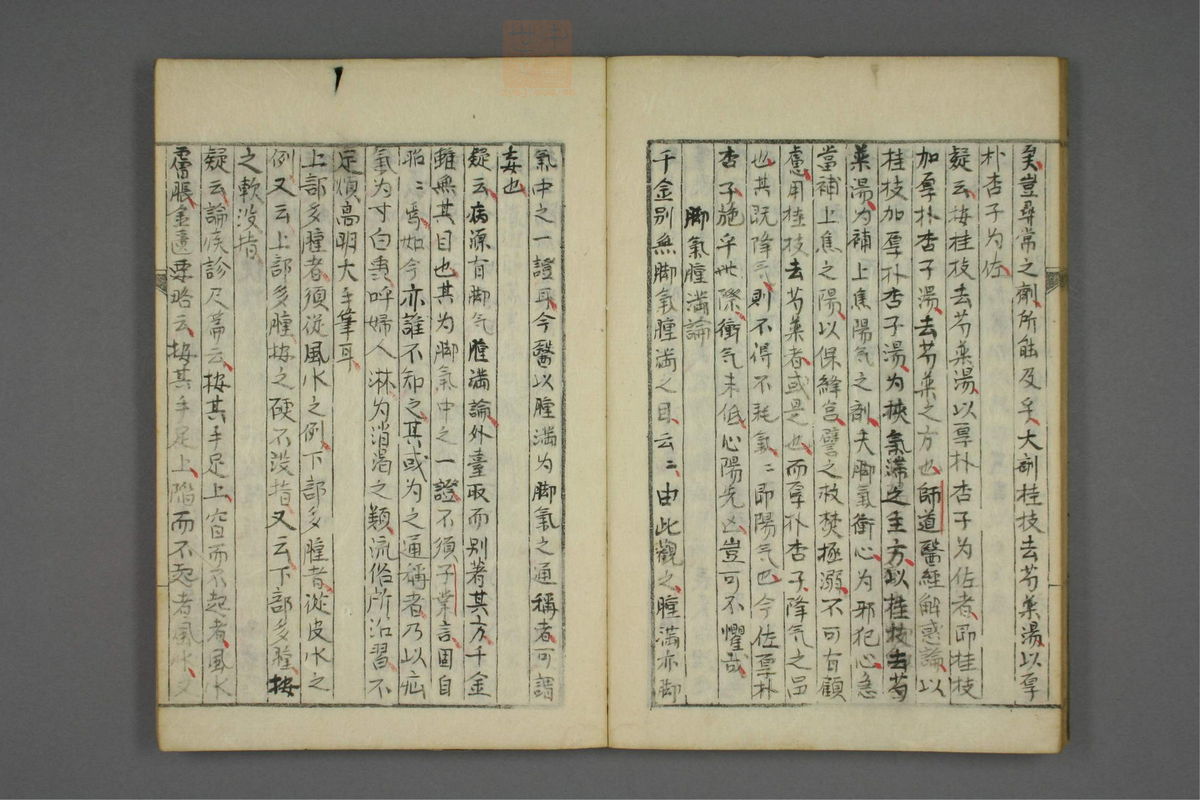 矣豈尋常之劑所能及乎大劑桂枝去芍薬湯以厚
朴杏子為佐
疑云按桂枝去芍薬湯以厚朴杏子為佐者即桂枝
加厚朴杏子湯去芍薬之方也師道醫經解惑論以
桂枝加厚朴杏子湯為挾氣滯之主方以桂枝去芍
薬湯為補上焦陽气之劑夫脚氣衝心為邪犯心急
當補上焦之陽以保絳宮譬之救焚極溺不可有顧
慮用桂枝去芍薬者或是也而厚朴杏子降气之品
也其既降气則不得不耗氣〻即陽气也今佐厚朴
杏子施乎此際衝气未低心陽先凶豈可不懼哉
脚氣腫満論
千金別無脚氣腫満之目云〻由此觀之腫満亦脚
氣中之一證耳今醫以腫満為脚氣之通稱者可謂
妄也
疑云病源有脚气腫満論外臺取而別著其方千金
雖無其目也其為脚氣中之一證不須子業言固自
昭〻焉如今亦誰不知之其或為之通稱者乃以疝
氣為寸白喪呼婦人淋為消渇之類流俗所沿習不
足煩高明大手筆耳
上部多腫者須從風水之例下部多腫者從皮水之
例又云上部多腫按之硬不没指又云下部多腫按
之軟没指
疑云論疾診尺篇云按其手足上窅而不起者風水
膚脹金匱要略云按其手足上陷而不起者風水又